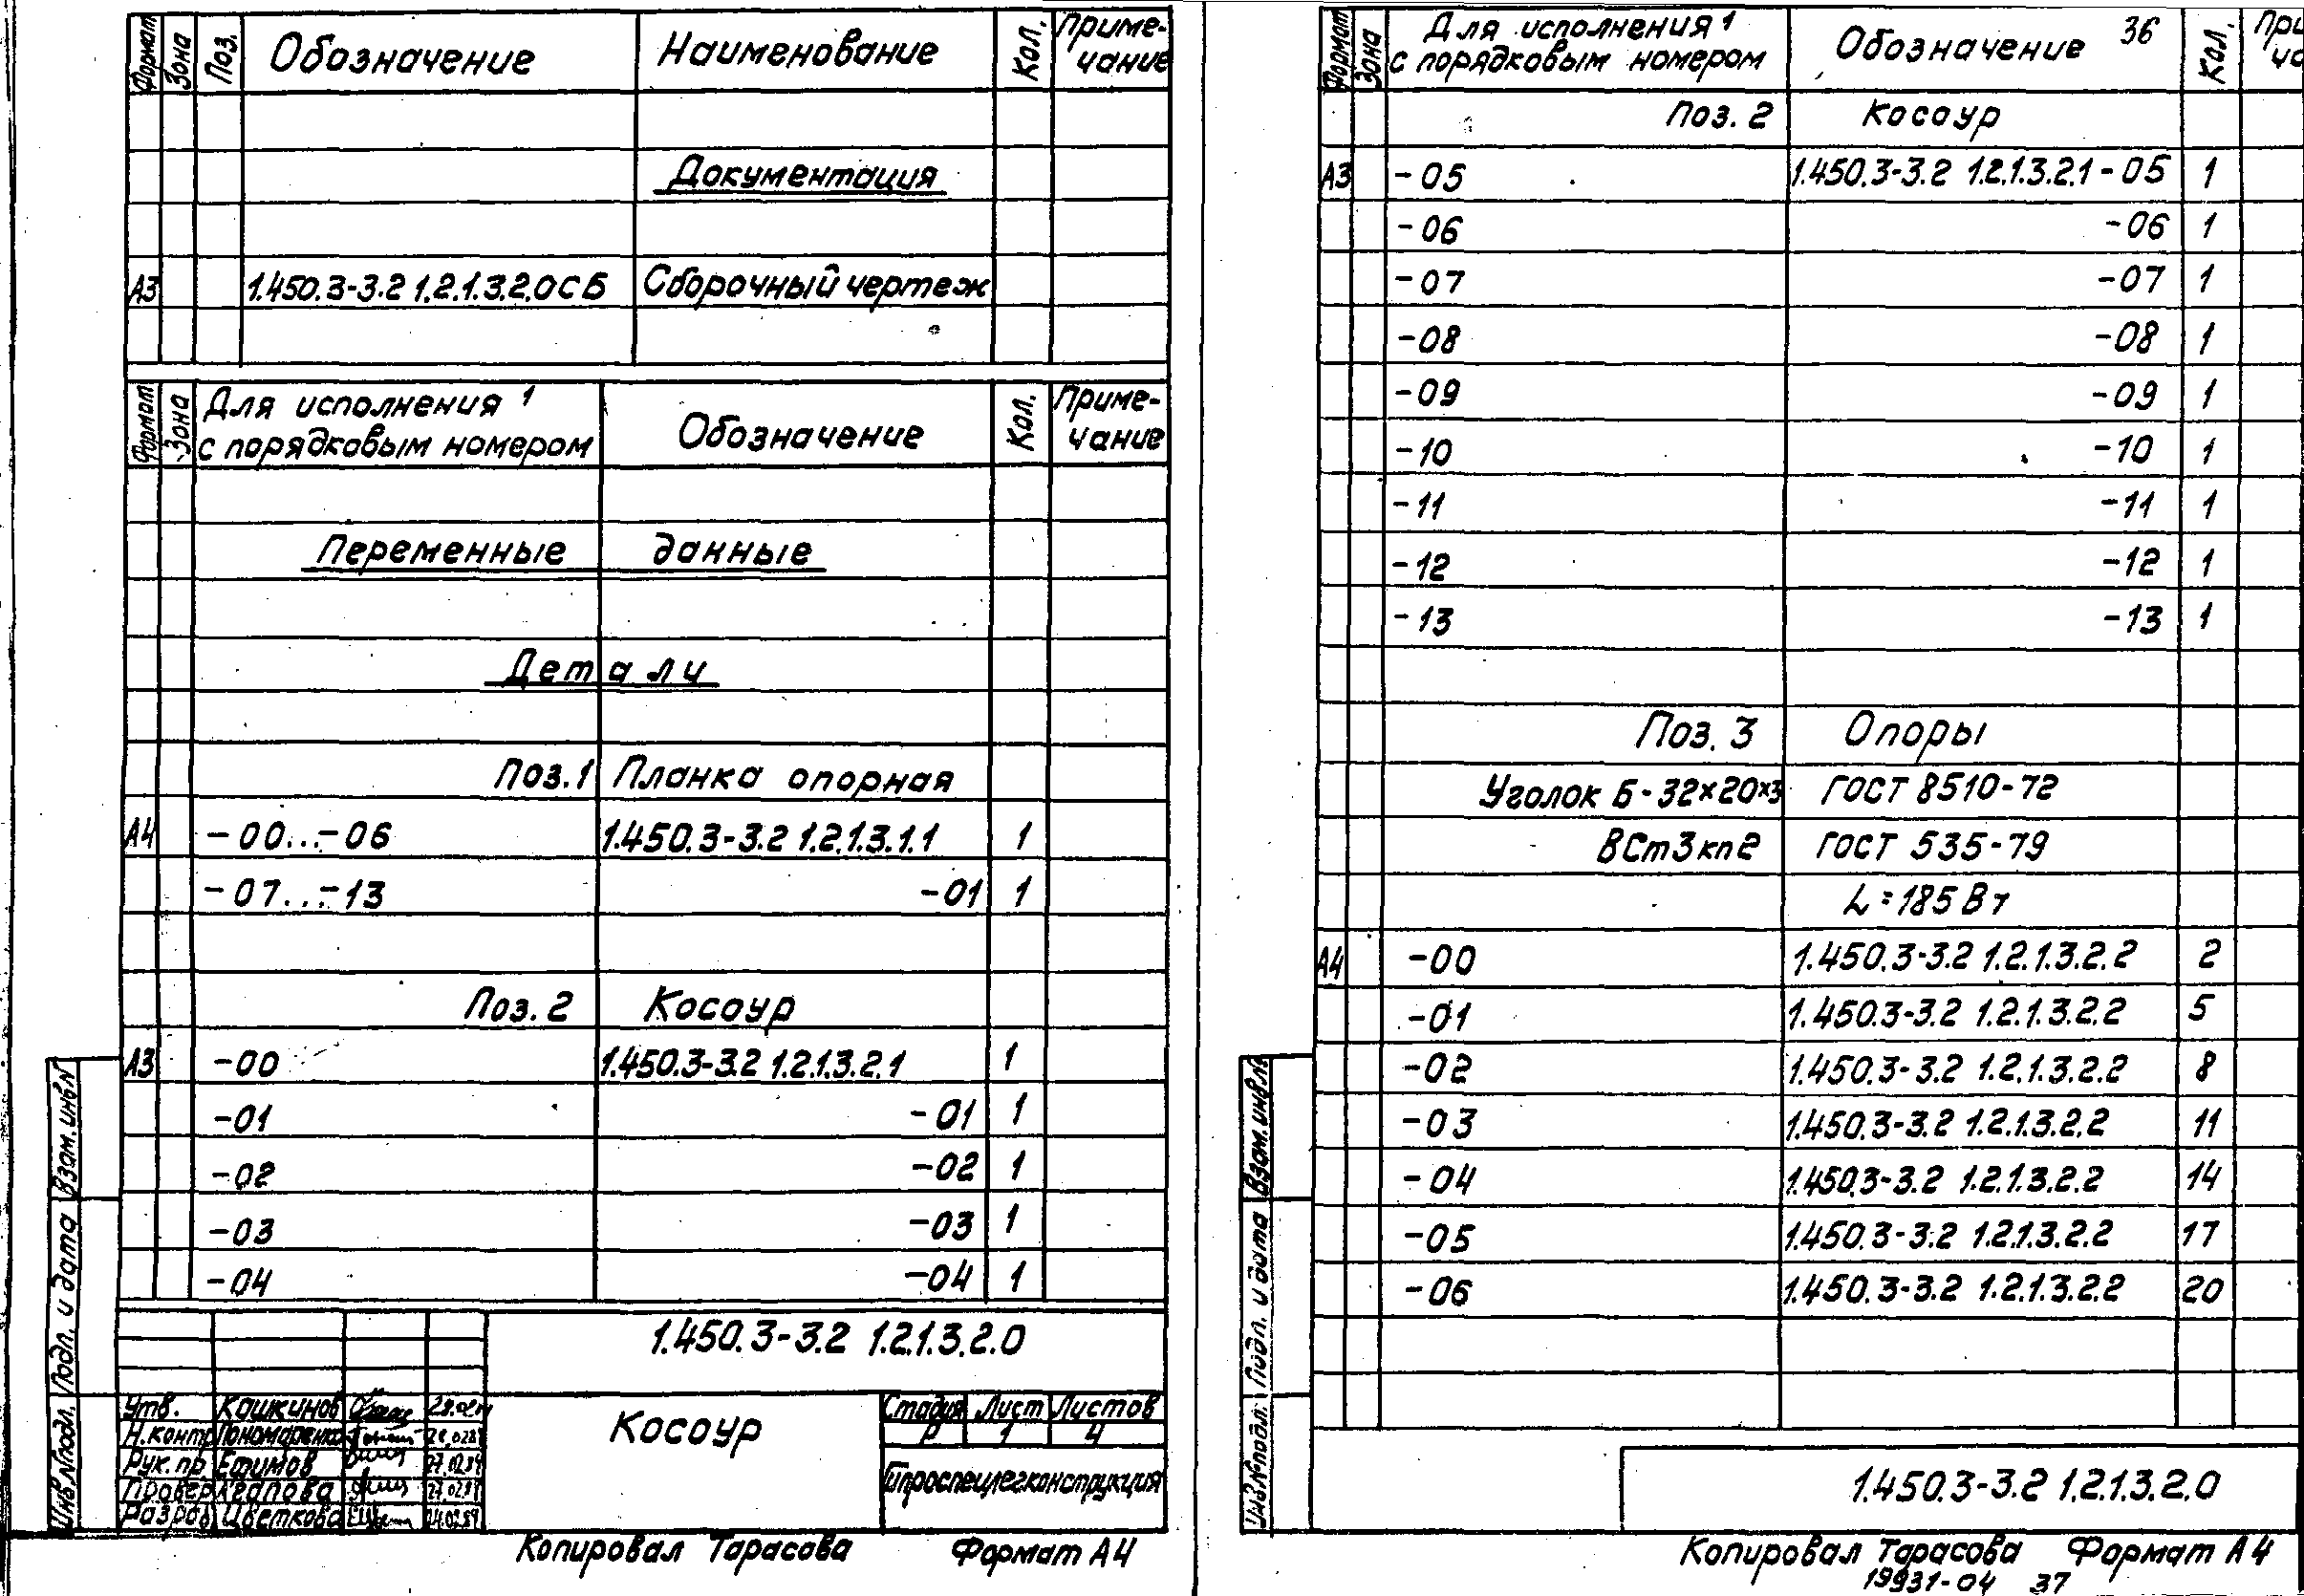 Формат Зона Поз. Обозначение Наименование Кол. Приме-
чание
Документация
А3 1.450.3-3.2 1.2.1.3.2.0СБ Сборочный чертеж
Формат Зона Для исполнения 1 Обозначение Кол. Приме-
с порядковым номером чание
Переменные данные
Детали
Поз.1 Планка опорная
А4 -00...-06 1.450.3-3.2 1.2.1.3.1.1 1
-07...-13 -01 1
Поз. 2 Косоур
А3 -00 1.450.3-3.2 1.2.1.3.2.1 1
-01 -01 1
-02 -02 1
-03 -03 1
-04 -04 1
Взам. инв. N
Подп. и дата
Инв. N подл.
1.450.3-3.2 1.2.1.3.2.0
Утв. Кашкинов
Н.контр Пономаренко
Рук. пр. Ефимов 27.02.84
Провер. 27.02.84
Разраб. Цветкова 24.02.84
Косоур
Стадия Лист Листов
Р 1 4
Гипроспецлегконструкция
Копировал Тарасова Формат А4
Формат Зона Для исполнения 1 Обозначение 36 Кол. При
с порядковым номером ча
Поз. 2 Косоур
А3 -05 1.450.3-3.2 1.2.1.3.2.1-05 1
-06 -06 1
-07 -07 1
-08 -08 1
-09 -09 1
-10 -10 1
-11 -11 1
-12 -12 1
-13 -13 1
Поз. 3 Опоры
Уголок Б-32×20×3 ГОСТ 8510-72
ВСт3кп2 ГОСТ 535-79
L=185 Вт
А4 -00 1.450.3-3.2 1.2.1.3.2.2 2
-01 1.450.3-3.2 1.2.1.3.2.2 5
-02 1.450.3-3.2 1.2.1.3.2.2 8
-03 1.450.3-3.2 1.2.1.3.2.2 11
-04 1.450.3-3.2 1.2.1.3.2.2 14
-05 1.450.3-3.2 1.2.1.3.2.2 17
-06 1.450.3-3.2 1.2.1.3.2.2 20
Взам. инв. №
Подп. и дата
Инв. № подл.
1.450.3-3.2 1.2.1.3.2.0
Копировал Тарасова Формат А4
19931-04 37